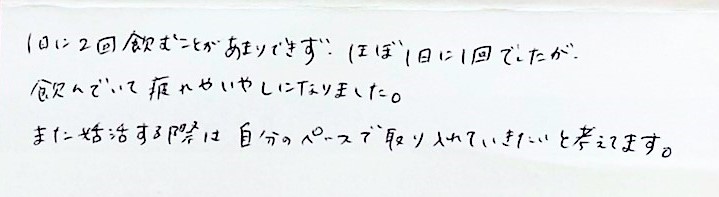 1日に2回飲むことがあまりできず、ほぼ1日に1回でしたが、
飲んでいて疲れやいやしになりました。
また妊活する際は自分のペースで取り入れていきたいと考えてます。